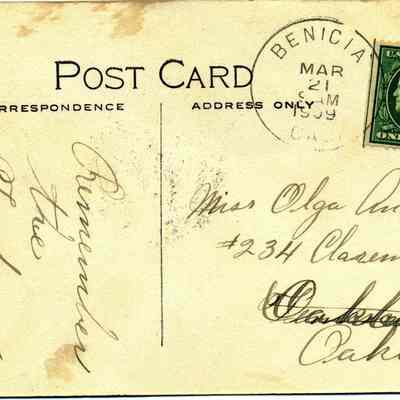 POST CARD
RRESPONDENCE
ADDRESS ONLY
BENICIA
MAR
21
AM
1909
CA
Remember
the
Miss Olga An
#234 Clarem
Oak